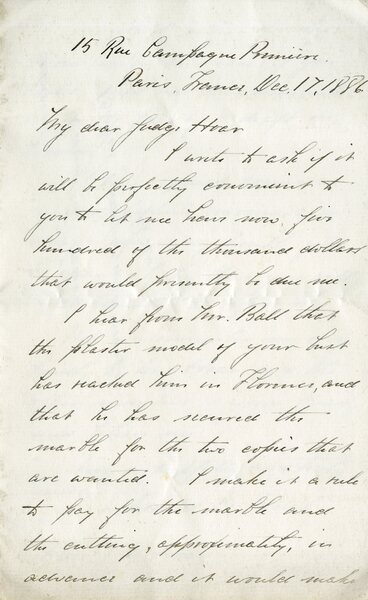 15 Rue Campagne Première.
Paris, France, Dec. 17, 1886
My dear Judge Hoar
I write to ask if it
will be perfectly convenient to
you to let me have now five
hundred of the thousand dollars
that would presently be due me.
I hear from Mr. Ball that
the plaster model of your bust
has reached him in Florence, and
that he has secured the
marble for the two copies that
are wanted. I make it a rule
to pay for the marble and
the cutting, approximately, in
advance and it would make